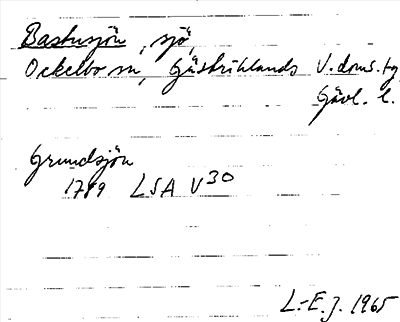 Bastusjön, sjö,
Ockelbo sn, Gästriklands V. doms. tg
Gävl. l.
Grundsjön
1789 LSA V30
L.-E. J. 1965